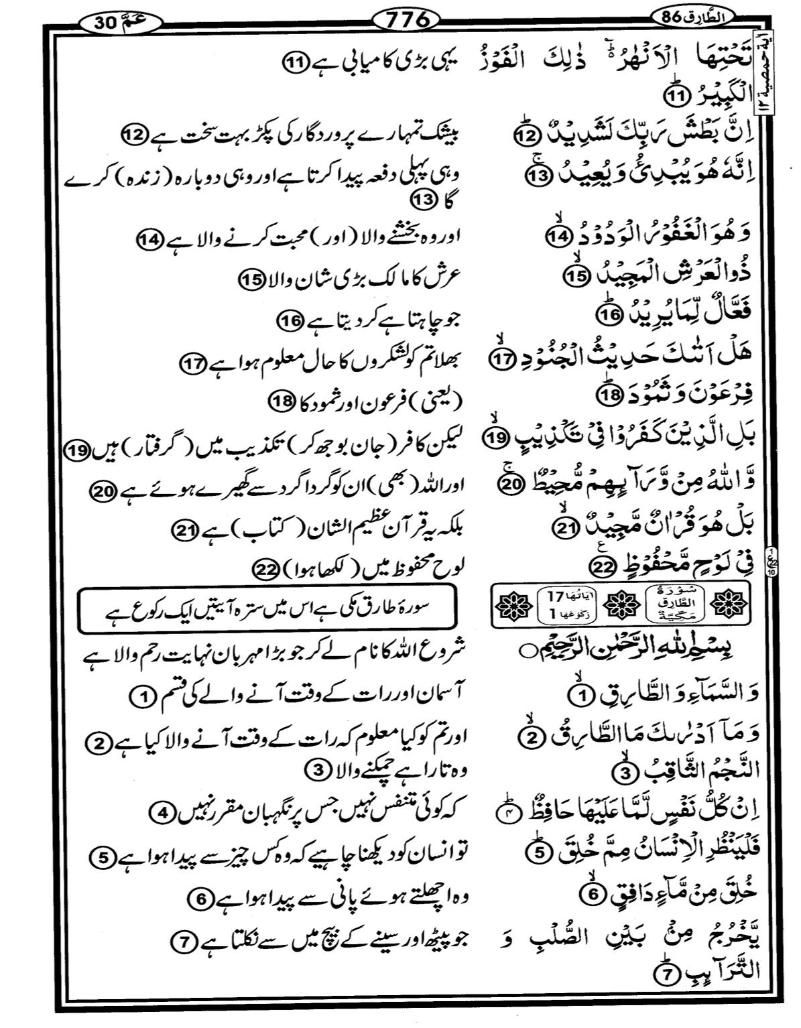 الطارق 86
776
عمّ 30
آية حمصية ١٢
تَحْتِهَا الْاَنْهٰرُ ؕ ذٰلِكَ الْفَوْزُ
یہی بڑی کامیابی ہے 11
الْكَبِيْرُ ؕ 11
اِنَّ بَطْشَ رَبِّكَ لَشَدِيْدٌ ؕ 12
بیشک تمہارے پروردگار کی پکڑ بہت سخت ہے 12
اِنَّهٗ هُوَ يُبْدِئُ وَ يُعِيْدُ ۚ 13
وہی پہلی دفعہ پیدا کرتا ہے اور وہی دوبارہ (زندہ) کرے
گا 13
وَ هُوَ الْغَفُوْرُ الْوَدُوْدُ ۙ 14
اور وہ بخشنے والا (اور) محبت کرنے والا ہے 14
ذُو الْعَرْشِ الْمَجِيْدُ ۙ 15
عرش کا مالک بڑی شان والا 15
فَعَّالٌ لِّمَا يُرِيْدُ ؕ 16
جو چاہتا ہے کر دیتا ہے 16
هَلْ اَتٰىكَ حَدِيْثُ الْجُنُوْدِ ۙ 17
بھلا تم کو لشکروں کا حال معلوم ہوا ہے 17
فِرْعَوْنَ وَ ثَمُوْدَ ؕ 18
(یعنی) فرعون اور ثمود کا 18
بَلِ الَّذِيْنَ كَفَرُوْا فِيْ تَكْذِيْبٍ ۙ 19
لیکن کافر (جان بوجھ کر) تکذیب میں (گرفتار) ہیں 19
وَّ اللّٰهُ مِنْ وَّرَآىِٕهِمْ مُّحِيْطٌ ۚ 20
اور اللہ (بھی) ان کو گردا گرد سے گھیرے ہوئے ہے 20
بَلْ هُوَ قُرْاٰنٌ مَّجِيْدٌ ۙ 21
بلکہ یہ قرآن عظیم الشان (کتاب) ہے 21
فِيْ لَوْحٍ مَّحْفُوْظٍ ࣖ 22
لوح محفوظ میں (لکھا ہوا) 22
سُوْرَةُ الطَّارِق مَكِّيَّةٌ
اٰيَاتُهَا 17 رُكُوْعُهَا 1
سورۂ طارق مکی ہے اس میں سترہ آیتیں ایک رکوع ہے
بِسْمِ اللّٰهِ الرَّحْمٰنِ الرَّحِيْمِ
شروع اللہ کا نام لے کر جو بڑا مہربان نہایت رحم والا ہے
وَ السَّمَآءِ وَ الطَّارِقِ ۙ 1
آسمان اور رات کے وقت آنے والے کی قسم 1
وَ مَاۤ اَدْرٰىكَ مَا الطَّارِقُ ۙ 2
اور تم کو کیا معلوم کہ رات کے وقت آنے والا کیا ہے 2
النَّجْمُ الثَّاقِبُ ۙ 3
وہ تارا ہے چمکنے والا 3
اِنْ كُلُّ نَفْسٍ لَّمَّا عَلَيْهَا حَافِظٌ ؕ ۴
کہ کوئی متنفس نہیں جس پر نگہبان مقرر نہیں 4
فَلْيَنْظُرِ الْاِنْسَانُ مِمَّ خُلِقَ ؕ 5
تو انسان کو دیکھنا چاہیے کہ وہ کس چیز سے پیدا ہوا ہے 5
خُلِقَ مِنْ مَّآءٍ دَافِقٍ ۙ 6
وہ اچھلتے ہوئے پانی سے پیدا ہوا ہے 6
يَّخْرُجُ مِنْۢ بَيْنِ الصُّلْبِ وَ
جو پیٹھ اور سینے کے بیچ میں سے نکلتا ہے 7
التَّرَآىِٕبِ ؕ 7